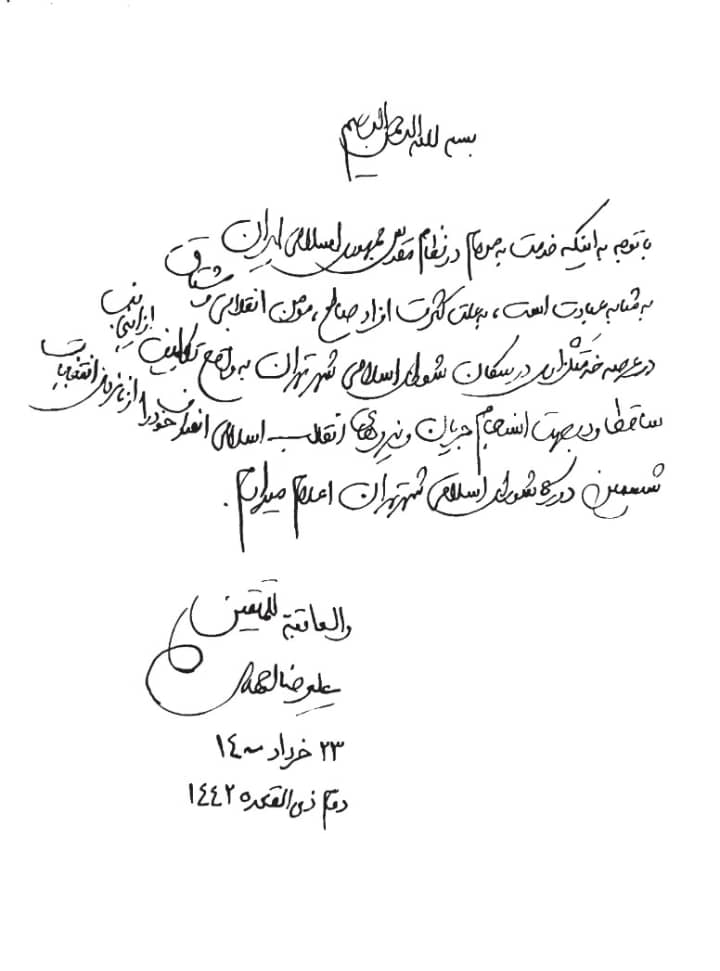 بسم الله الرحمن الرحیم
با توجه به اینکه خدمت به مردم در نظام مقدس جمهوری اسلامی ایران
به مثابه عبادت است، به علت کثرت افراد صالح، مومن انقلابی و مشتاق
در عرصه خدمتگزاری در سکان شورای اسلامی شهر تهران به واقع تکلیف از اینجانب
ساقط و در جهت انسجام جریان و نیروهای انقلاب اسلامی انصراف خود را از نامزدی انتخابات
ششمین دوره شورای اسلامی شهر تهران اعلام میدارم.
والعاقبة للمتقین
علیرضا
۲۳ خرداد ۱۴۰۰
دوم ذی القعده ۱۴۴۲